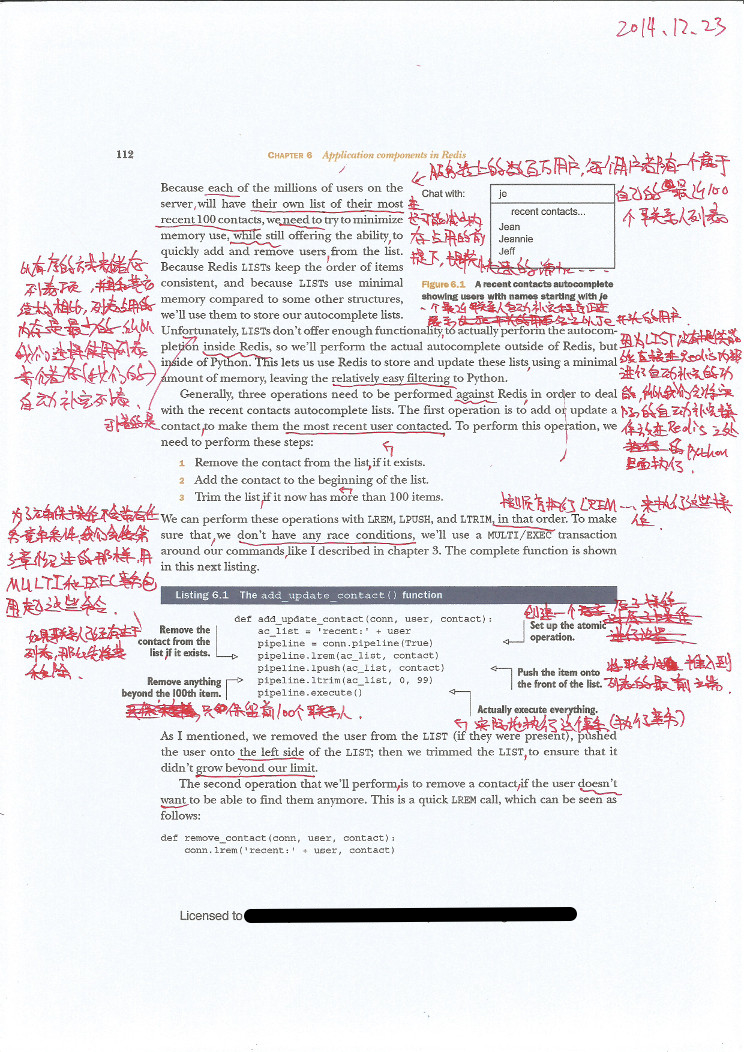 2014.12.23
112
CHAPTER 6 Application components in Redis
服务器上的数百万用户,每个用户都有一个属于
自己的最近100
个联系人列表
Because each of the millions of users on the
server, will have their own list of their most
recent 100 contacts, we need to try to minimize
memory use, while still offering the ability to
quickly add and remove users from the list.
Because Redis LISTs keep the order of items
consistent, and because LISTs use minimal
memory compared to some other structures,
we'll use them to store our autocomplete lists.
Unfortunately, LISTs don't offer enough functionality to actually perform the autocom-
pletion inside Redis, so we'll perform the actual autocomplete outside of Redis, but
inside of Python. This lets us use Redis to store and update these lists using a minimal
amount of memory, leaving the relatively easy filtering to Python.
Chat with:
je
recent contacts...
Jean
Jeannie
Jeff
Figure 6.1 A recent contacts autocomplete
showing users with names starting with je
在尽可能减少内
存占用的前
提下,
一个最近联系人自动补全程序正在
以Je开头的用户
以有序的方式来储存
列表不变,并且和其它
结构相比,列表占用的
内存是最少的,所以
我们选择使用列表
来储存(我们)的
自动补完列表.
可惜的是
因为LIST没有提供足够
的直接在Redis内部
进行自动补完的功
能,所以我们会将实
际的自动补完操
作放在Redis之外
的Python
里面执行.
Generally, three operations need to be performed against Redis in order to deal
with the recent contacts autocomplete lists. The first operation is to add or update a
contact, to make them the most recent user contacted. To perform this operation, we
need to perform these steps:
1 Remove the contact from the list, if it exists.
2 Add the contact to the beginning of the list.
3 Trim the list if it now has more than 100 items.
按顺序执行LREM...来执行这些操
作.
We can perform these operations with LREM, LPUSH, and LTRIM, in that order. To make
sure that we don't have any race conditions, we'll use a MULTI/EXEC transaction
around our commands, like I described in chapter 3. The complete function is shown
in this next listing.
为了确保操作不会带有任
何竞争条件,我们会像第
3章介绍的那样,用
MULTI和EXEC事务包
围起这些命令.
Listing 6.1 The add_update_contact() function
def add_update_contact(conn, user, contact):
    ac_list = 'recent:' + user
    pipeline = conn.pipeline(True)
    pipeline.lrem(ac_list, contact)
    pipeline.lpush(ac_list, contact)
    pipeline.ltrim(ac_list, 0, 99)
    pipeline.execute()
Remove the
contact from the
list if it exists.
Remove anything
beyond the 100th item.
Set up the atomic
operation.
Push the item onto
the front of the list.
Actually execute everything.
如果联系人已经存在于
列表,那么先将其
移除.
创建一个原子操作
将联系人推入到
列表的最前端.
只保留前100个联系人.
实际地执行这些操作(执行事务)
As I mentioned, we removed the user from the LIST (if they were present), pushed
the user onto the left side of the LIST; then we trimmed the LIST, to ensure that it
didn't grow beyond our limit.
The second operation that we'll perform, is to remove a contact, if the user doesn't
want to be able to find them anymore. This is a quick LREM call, which can be seen as
follows:
def remove_contact(conn, user, contact):
    conn.lrem('recent:' + user, contact)
Licensed to